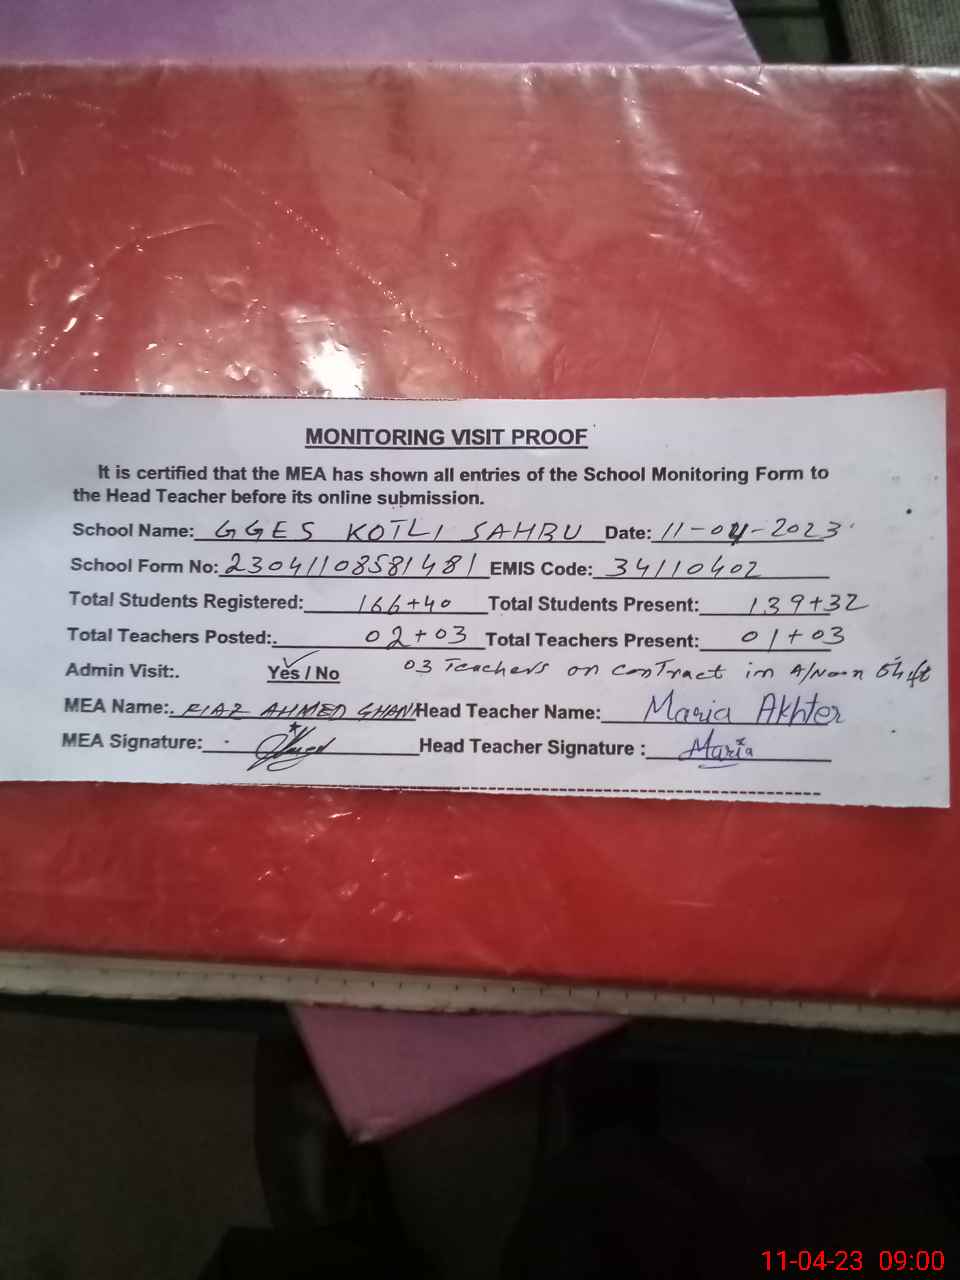 MONITORING VISIT PROOF
It is certified that the MEA has shown all entries of the School Monitoring Form to
the Head Teacher before its online submission.
School Name: GGES KOTLI SAHBU Date: 11-04-2023
School Form No: 23041108581481 EMIS Code: 34110402
Total Students Registered: 166+40 Total Students Present: 139+32
Total Teachers Posted: 02+03 Total Teachers Present: 01+03
Admin Visit:. Yes / No 03 Teachers on conTract in A/Noon Shift
MEA Name: RIAZ AHMED GHANI Head Teacher Name: Maria Akhter
MEA Signature: Head Teacher Signature : Maria
11-04-23 09:00